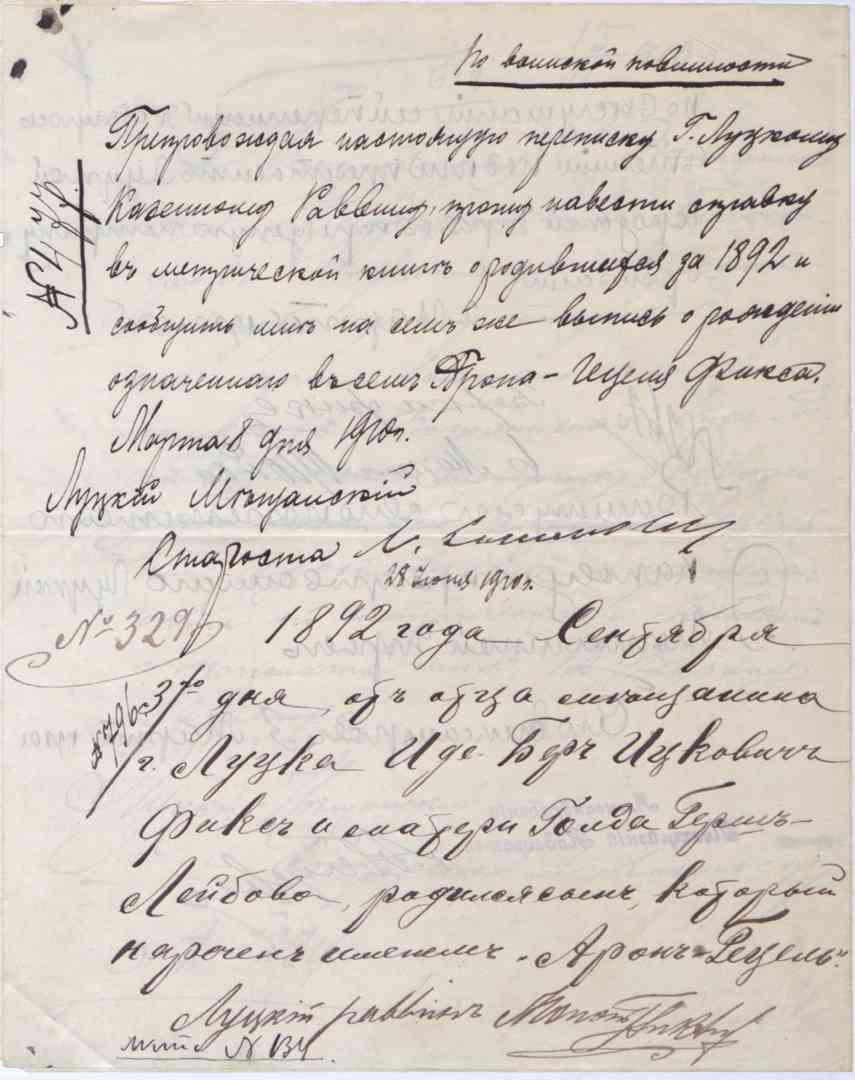 По воинской повинности
Препровождая настоящую переписку Г. Луцкому
Казенному Раввину, прошу навести справку
въ метрической книгѣ о родившихся за 1892 и
сообщить мнѣ на семъ же выпись о рожденіи
означеннаго въ семъ Арона-Гецеля Фикса.
Марта 8 дня 1910 г.
Луцкій Мѣщанскій
Староста
28 Іюня 1910 г.
№ 329 1892 года Сентября
3го дня, отъ отца мѣщанина
№ 796
г. Луцка Иде-Беръ Ицковичъ
Фиксъ и матери Голда Гершъ-
Лейбова, родился сынъ, который
нареченъ именемъ „Аронъ-Гецель“.
Луцкій раввинъ